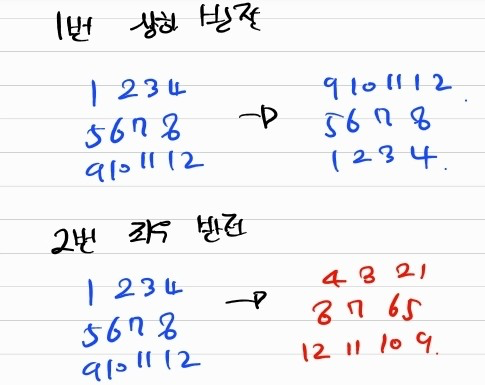 1번 상하 반전
1 2 3 4 → 9 10 11 12
5 6 7 8 → 5 6 7 8
9 10 11 12 1 2 3 4
2번 좌우 반전
1 2 3 4 → 4 3 2 1
5 6 7 8 8 7 6 5
9 10 11 12 12 11 10 9